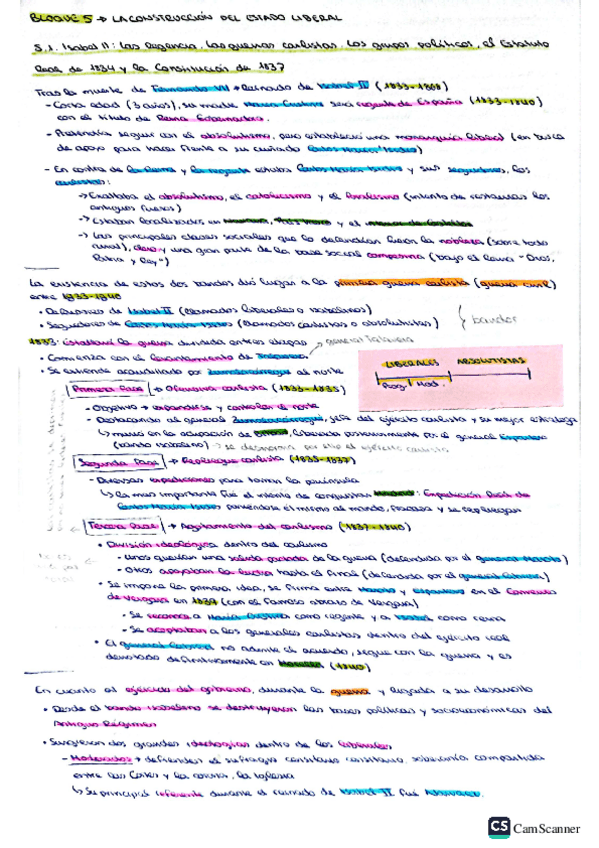 BLOQUE 5 → LA CONSTRUCCIÓN DEL ESTADO LIBERAL
5.1. Isabel II: Las regencias, las guerras carlistas. Los grupos políticos, el Estatuto
Real de 1834 y la Constitución de 1837
Tras la muerte de Fernando VII → Reinado de Isabel II (1833-1868)
- Corta edad (3 años), su madre María Cristina será regente de España (1833-1840)
con el título de Reina Gobernadora.
- Pretendía seguir con el absolutismo, pero estableció una monarquía liberal (en busca
de apoyo para hacer frente a su cuñado Carlos María Isidro)
- En contra de la Reina y la regente estaba Carlos María Isidro y sus seguidores, los
carlistas:
→ Exaltaba el absolutismo, el catolicismo y el foralismo (intento de restaurar los
antiguos fueros)
→ Estaban localizados en y el
→ Las principales clases sociales que lo defendían fueron la nobleza (sobre todo
rural), clero y una gran parte de la base social campesina (bajo el lema "Dios,
Patria y Rey")
La existencia de estos dos bandos dió lugar a la primera guerra carlista (guerra civil)
entre 1833-1840
• Defensores de Isabel II (llamados liberales o isabelinos)
• Seguidores de Carlos María Isidro (llamados carlistas o absolutistas)
} bandos
1833: Estalló la guerra dividida en tres etapas
• Comienza con el levantamiento de Talavera → general Talavera
• Se extiende acaudillado por Zumalacárregui al norte
LIBERALES ABSOLUTISTAS
Prog. Mod.
Primera fase → Ofensiva carlista (1833-1835)
- Objetivo → expandirse y controlar el norte
- Destacando al general Zumalacárregui, jefe del ejército carlista y su mejor estratega
↳ murió en la ocupación de Bilbao, liberado posteriormente por el general Espartero
(bando isabelino) → se desmorona por ello el ejército carlista
Segunda fase → Repliegue carlista (1835-1837)
- Diversas expediciones para tomar la península
↳ la más importante fue el intento de conquistar Madrid: Expedición Real de
Carlos María Isidro poniéndose él mismo al mando, fracasa y se repliegan
Tercera fase → Agotamiento del carlismo (1837-1840)
• División ideológica dentro del carlismo
- Unos querían una salida pactada de la guerra (defendida por el general Maroto)
- Otros apoyaban la lucha hasta el final (defendida por el general Cabrera)
• Se impone la primera idea, se firma entre Maroto y Espartero en el Convenio
de Vergara en 1839 (con el famoso abrazo de Vergara)
• Se reconoce a María Cristina como regente y a Isabel como reina
- Se aceptaban a los generales carlistas dentro del ejército real
• El general Cabrera no admite el acuerdo, sigue con la guerra y es
derrotado definitivamente en Morella (1840)
En cuanto al ejercicio del gobierno, durante la guerra y llegada a su desarrollo
• Desde el bando isabelino se destruyeron las bases políticas y socioeconómicas del
Antiguo Régimen
• Surgieron dos grandes ideologías dentro de los liberales
- Moderados → defienden el sufragio censitario, soberanía compartida
entre las Cortes y la corona, la Iglesia
↳ Su principal referente durante el reinado de Isabel II fue Narváez.
CS CamScanner